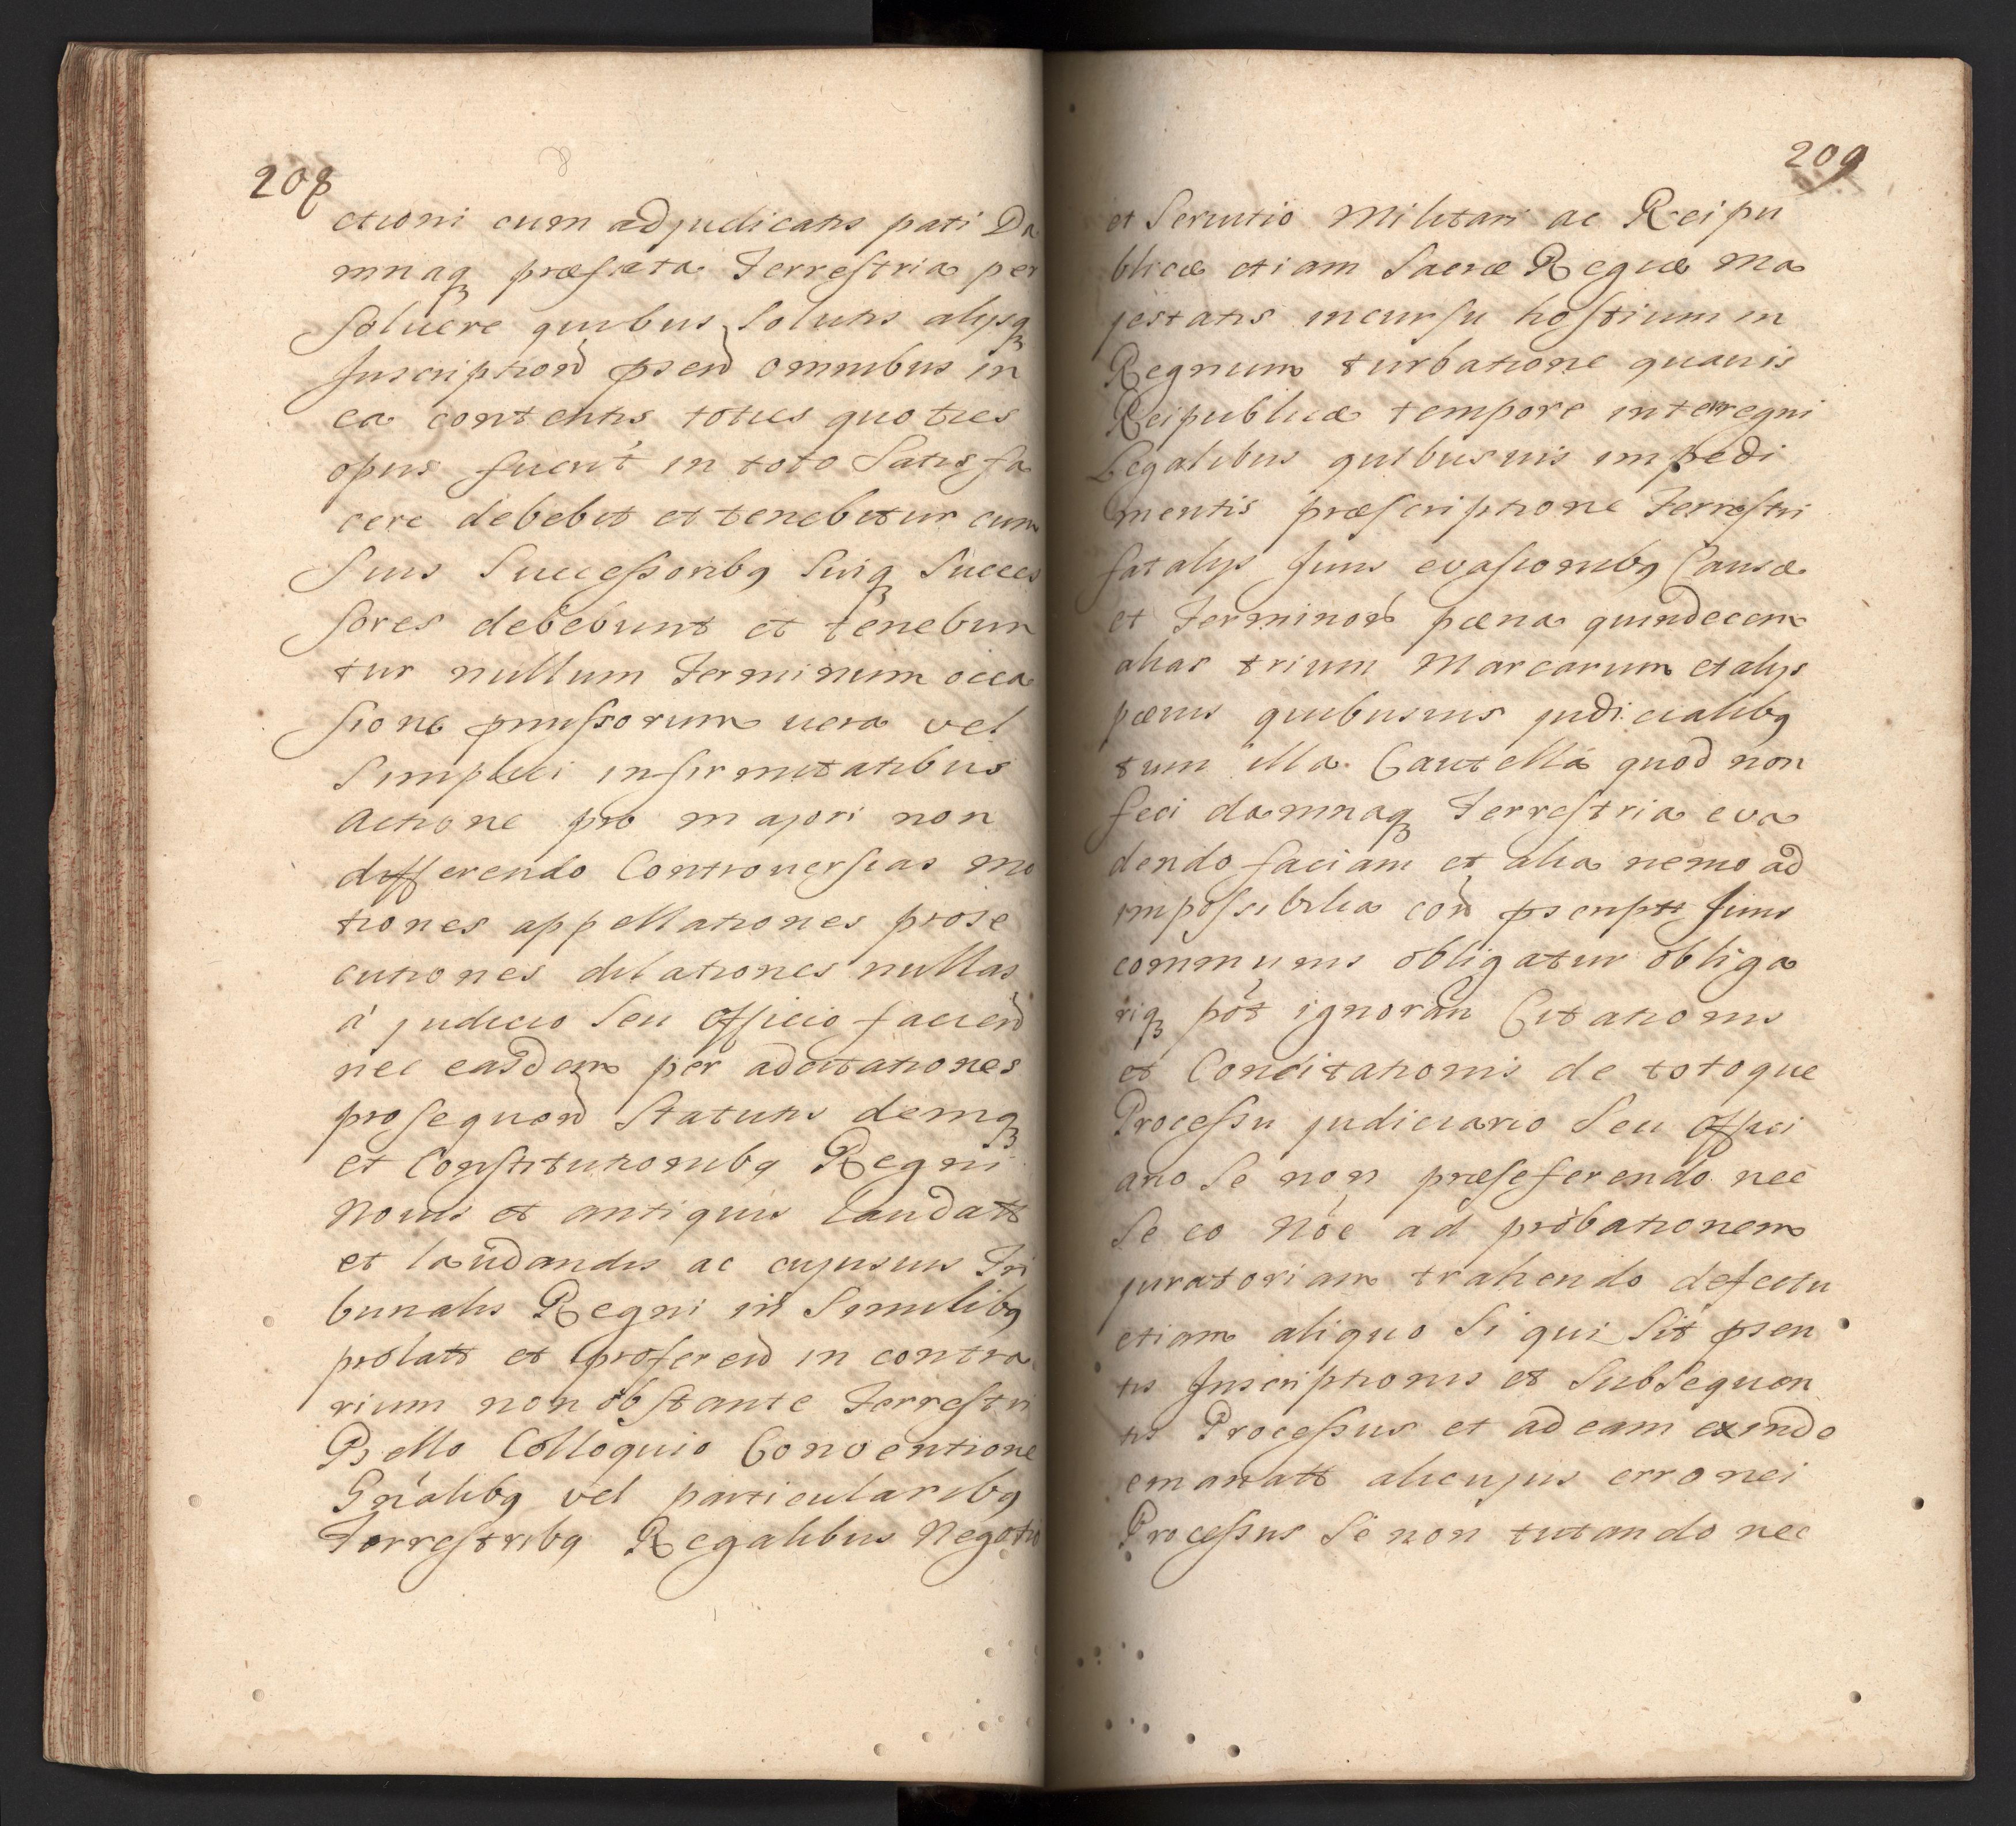 208
ctioni cum adjudicatis pati Da
mnaq₃ præfata Terrestria per
soluere quibus solutis alijsq₃
Inscription̄ pn̄tis omnibus in
ea contentis toties quoties
opus fuerit in toto Satisfa
cere debebit et tenebitur cum
Suis Successoribq Suiq₃ Succes
sores debebunt et tenebun
tur nullum Terminum occa
sione pmissorum uera vel
Simplici infirmitatibus
Actione pro majori non
differendo Controuersias mo
tiones appellationes prose
cutiones dilationes nullas
à judicio Seu Officio faciend
nec easdem per adcitationes
prosequend Statutis deniq₃
et Constitutionibq Regni
Nouis et antiquis laudatt
et laudandis ac cujusuis Tri
bunalis Regni in Similibq
prolatt et proferend in contra
rium non obstante Terrestri
Bello Colloquio Conventione
Gnālibq vel particularibq
Terrestribq Regalibus Negotio
209
et Seruitio Militari ac Reipu
blicæ etiam Sacræ Regiæ Ma
jestatis incursu hostium in
Regnum turbatione quauis
Reipublicæ tempore interregni
Legalibus quibusuis impedi
mentis præscriptione Terrestri
fatalijs Juris evasionibq Causæ
et Terminor̄ pæna quindecem
alias trium Marcarum et alijs
pænis quibusuis judicialibq
tum illa Cautella quod non
feci damnaq₃ Terrestria eva
dendo faciam et alia nemo ad
impossibilia con pscriptt Juris
communis obligatur obliga
riq₃ pōt ignoran Citationis
et Concitationis de totoque
Processu judiciario Seu Offici
ario Se non præseferendo nec
Se eo Nōe ad probationem
juratoriam trahendo defectu
etiam aliquo Si qui Sit psen
tis Inscriptionis et Subsequen
tis Processus et ad eam exinde
emanatt alicujus erronei
Processus Se non tutando nec